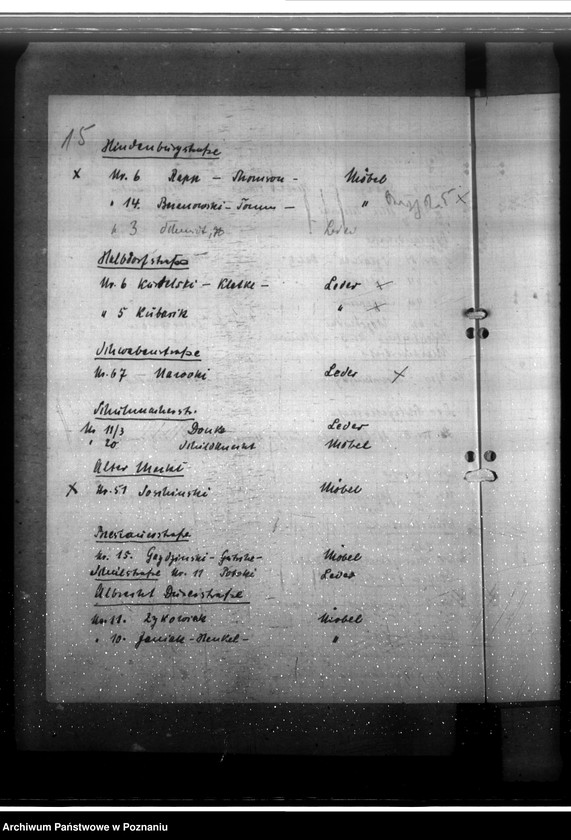 15
Hindenburgstraße
x Nr. 6 Rapp – Thomson – Möbel
" 14. – " x
" 3 Leder
Halbdorfstraße
Nr. 6 – Klatke – Leder x
" 5 Kubasik " x
Schwabenstraße
Nr. 67 – Nawocki Leder x
Schuhmacherstr.
Nr. 11/3 Donke Leder
" 20 Schildknecht Möbel
Alter Markt
x Nr. 51 Soschinski Möbel
Breslauerstraße
Nr. 15. Gozdzinski – – Möbel
Schulstraße Nr. 11 Potocki Leder
Albrecht Dürerstraße
Nr. 11. Zykowiak Möbel
" 10. Janiak – Henkel – "
Archiwum Państwowe w Poznaniu